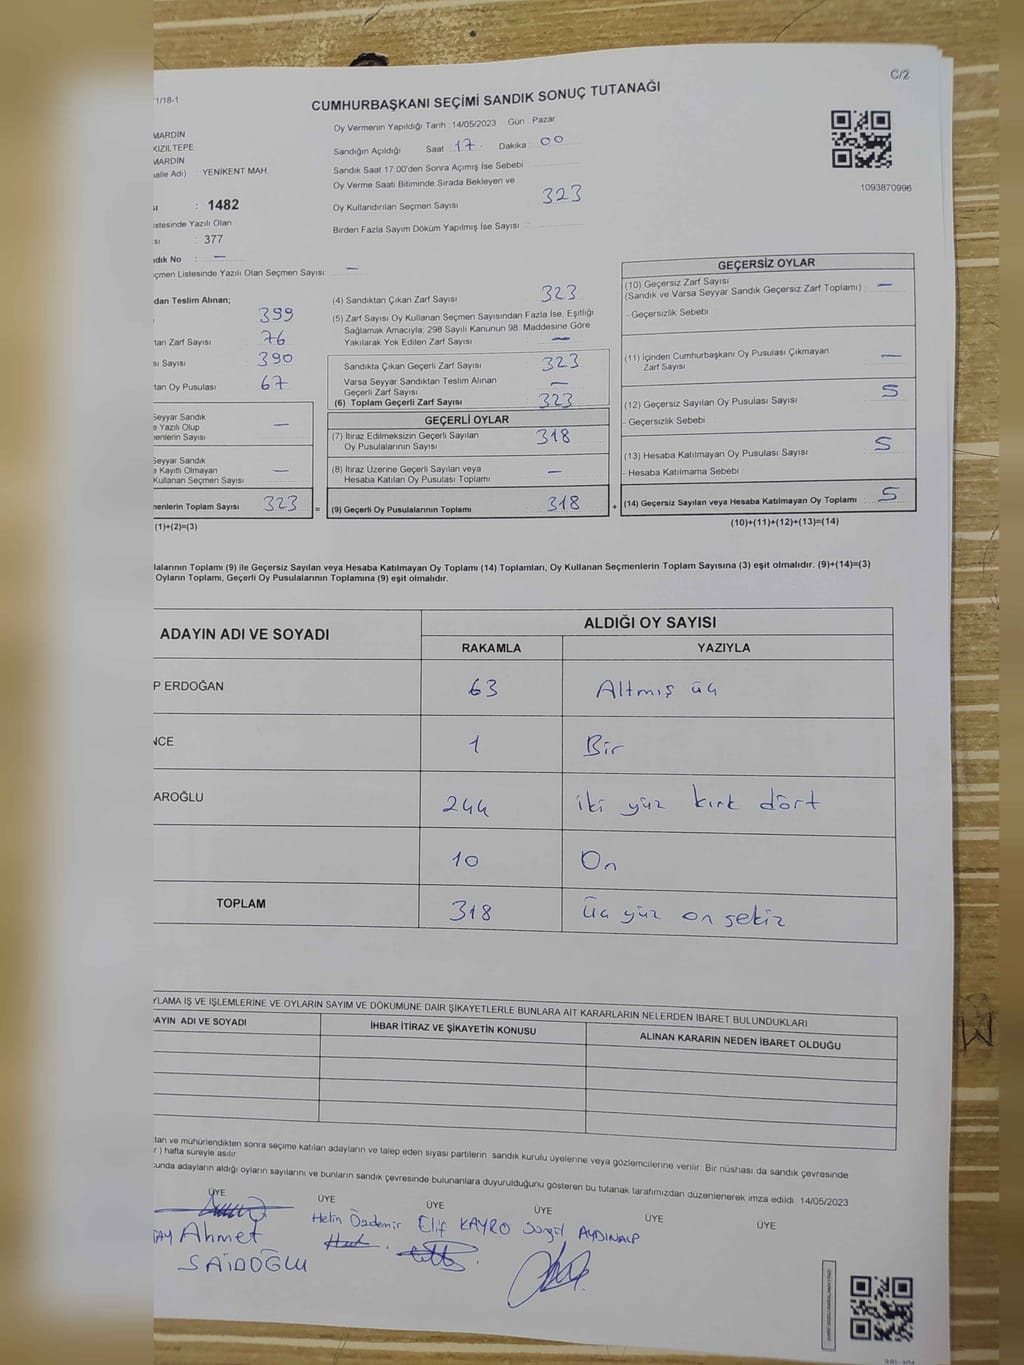 C/2
1/18-1
CUMHURBAŞKANI SEÇİMİ SANDIK SONUÇ TUTANAĞI
MARDİN
KIZILTEPE
MARDİN
alle Adı) YENİKENT MAH.
: 1482
istesinde Yazılı Olan
sı 377
dık No : —
çmen Listesinde Yazılı Olan Seçmen Sayısı: —
Oy Vermenin Yapıldığı Tarih : 14/05/2023 Gün : Pazar
Sandığın Açıldığı Saat 17 Dakika 00
Sandık Saat 17:00'den Sonra Açımış İse Sebebi
Oy Verme Saati Bitiminde Sırada Bekleyen ve
Oy Kullandırılan Seçmen Sayısı 323
Birden Fazla Sayım Döküm Yapılmış İse Sayısı
1093870996
dan Teslim Alınan;
399
tan Zarf Sayısı 76
sı Sayısı 390
tan Oy Pusulası 67
Seyyar Sandık
e Yazılı Olup
enlerin Sayısı —
Seyyar Sandık
e Kayıtlı Olmayan
Kullanan Seçmen Sayısı —
menlerin Toplam Sayısı 323 =
(1)+(2)=(3)
(4) Sandıktan Çıkan Zarf Sayısı 323
(5) Zarf Sayısı Oy Kullanan Seçmen Sayısından Fazla İse, Eşitliği
Sağlamak Amacıyla; 298 Sayılı Kanunun 98. Maddesine Göre
Yakılarak Yok Edilen Zarf Sayısı —
Sandıkta Çıkan Geçerli Zarf Sayısı 323
Varsa Seyyar Sandıktan Teslim Alınan
Geçerli Zarf Sayısı —
(6) Toplam Geçerli Zarf Sayısı 323
GEÇERLİ OYLAR
(7) İtiraz Edilmeksizin Geçerli Sayılan
Oy Pusulalarının Sayısı 318
(8) İtiraz Üzerine Geçerli Sayılan veya
Hesaba Katılan Oy Pusulası Toplamı —
(9) Geçerli Oy Pusulalarının Toplamı 318 +
GEÇERSİZ OYLAR
(10) Geçersiz Zarf Sayısı
(Sandık ve Varsa Seyyar Sandık Geçersiz Zarf Toplamı) —
- Geçersizlik Sebebi
(11) İçinden Cumhurbaşkanı Oy Pusulası Çıkmayan
Zarf Sayısı —
(12) Geçersiz Sayılan Oy Pusulası Sayısı 5
- Geçersizlik Sebebi
(13) Hesaba Katılmayan Oy Pusulası Sayısı 5
- Hesaba Katılmama Sebebi
(14) Geçersiz Sayılan veya Hesaba Katılmayan Oy Toplamı 5
(10)+(11)+(12)+(13)=(14)
lalarının Toplamı (9) ile Geçersiz Sayılan veya Hesaba Katılmayan Oy Toplamı (14) Toplamları, Oy Kullanan Seçmenlerin Toplam Sayısına (3) eşit olmalıdır. (9)+(14)=(3)
Oyların Toplamı, Geçerli Oy Pusulalarının Toplamına (9) eşit olmalıdır.
ADAYIN ADI VE SOYADI
ALDIĞI OY SAYISI
RAKAMLA YAZIYLA
P ERDOĞAN 63 Altmış üç
NCE 1 Bir
AROĞLU 244 iki yüz kırk dört
10 On
TOPLAM 318 üç yüz on sekiz
YLAMA İŞ VE İŞLEMLERİNE VE OYLARIN SAYIM VE DÖKÜMÜNE DAİR ŞİKAYETLERLE BUNLARA AİT KARARLARIN NELERDEN İBARET BULUNDUKLARI
AYIN ADI VE SOYADI İHBAR İTİRAZ VE ŞİKAYETİN KONUSU ALINAN KARARIN NEDEN İBARET OLDUĞU
tan ve mühürlendikten sonra seçime katılan adayların ve talep eden siyasi partilerin sandık kurulu üyelerine veya gözlemcilerine verilir. Bir nüshası da sandık çevresinde
r ) hafta süreyle asılır.
unda adayların aldığı oyların sayılarını ve bunların sandık çevresinde bulunanlara duyurulduğunu gösteren bu tutanak tarafımızdan düzenlenerek imza edildi. 14/05/2023
ÜYE ÜYE ÜYE ÜYE ÜYE ÜYE
Ahmet Helin Özdemir Elif KAYRO Songül AYDINALP
SAİDOĞLU